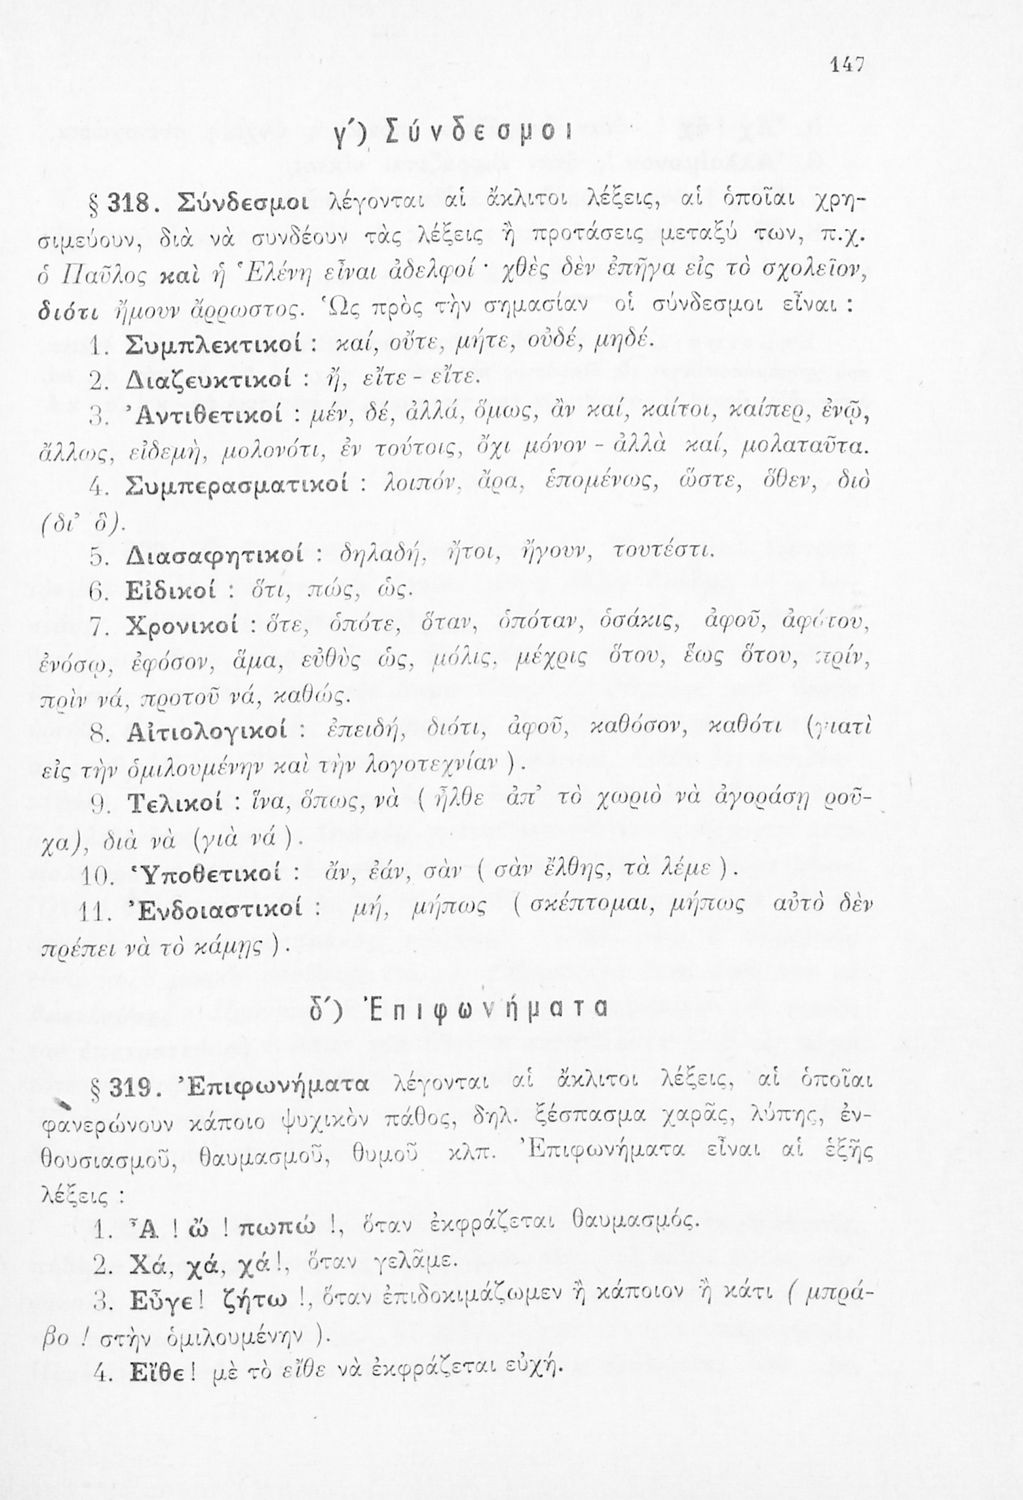 147
γ′) Σύνδεσμοι
§ 318. Σύνδεσμοι λέγονται αἱ ἄκλιτοι λέξεις, αἱ ὁποῖαι χρη-
σιμεύουν, διὰ νὰ συνδέουν τὰς λέξεις ἢ προτάσεις μεταξύ των, π.χ.
ὁ Παῦλος καὶ ἡ Ἑλένη εἶναι ἀδελφοί · χθὲς δὲν ἐπῆγα εἰς τὸ σχολεῖον,
διότι ἤμουν ἄρρωστος. Ὡς πρὸς τὴν σημασίαν οἱ σύνδεσμοι εἶναι :
1. Συμπλεκτικοί : καί, οὔτε, μήτε, οὐδέ, μηδέ.
2. Διαζευκτικοί : ἤ, εἴτε - εἴτε.
3. Ἀντιθετικοί : μέν, δέ, ἀλλά, ὅμως, ἂν καί, καίτοι, καίπερ, ἐνῷ,
ἄλλως, εἰδεμὴ, μολονότι, ἐν τούτοις, ὄχι μόνον - ἀλλὰ καί, μολαταῦτα.
4. Συμπερασματικοί : λοιπόν, ἄρα, ἑπομένως, ὥστε, ὅθεν, διὸ
(δι’ ὃ).
5. Διασαφητικοί : δηλαδή, ἤτοι, ἤγουν, τουτέστι.
6. Εἰδικοί : ὅτι, πώς, ὡς.
7. Χρονικοί : ὅτε, ὁπότε, ὅταν, ὁπόταν, ὁσάκις, ἀφοῦ, ἀφότου,
ἐνόσῳ, ἐφόσον, ἅμα, εὐθὺς ὡς, μόλις, μέχρις ὅτου, ἕως ὅτου, πρίν,
πρὶν νά, προτοῦ νά, καθώς.
8. Αἰτιολογικοί : ἐπειδή, διότι, ἀφοῦ, καθόσον, καθότι (γιατὶ
εἰς τὴν ὁμιλουμένην καὶ τὴν λογοτεχνίαν ).
9. Τελικοί : ἵνα, ὅπως, νὰ ( ἦλθε ἀπ’ τὸ χωριὸ νὰ ἀγοράσῃ ροῦ-
χα), διὰ νὰ (γιὰ νά ).
10. Ὑποθετικοί : ἄν, ἐάν, σὰν ( σὰν ἔλθῃς, τὰ λέμε ).
11. Ἐνδοιαστικοί : μή, μήπως ( σκέπτομαι, μήπως αὐτὸ δὲν
πρέπει νὰ τὸ κάμῃς ).
δ′) Ἐπιφωνήματα
§ 319. Ἐπιφωνήματα λέγονται αἱ ἄκλιτοι λέξεις, αἱ ὁποῖαι
φανερώνουν κάποιο ψυχικὸν πάθος, δηλ. ξέσπασμα χαρᾶς, λύπης, ἐν-
θουσιασμοῦ, θαυμασμοῦ, θυμοῦ κλπ. Ἐπιφωνήματα εἶναι αἱ ἑξῆς
λέξεις :
1. Ἆ ! ὤ ! πωπώ !, ὅταν ἐκφράζεται θαυμασμός.
2. Χά, χά, χά!, ὅταν γελᾶμε.
3. Εὖγε! ζήτω !, ὅταν ἐπιδοκιμάζωμεν ἢ κάποιον ἢ κάτι ( μπρά-
βο ! στὴν ὁμιλουμένην ).
4. Εἴθε! μὲ τὸ εἴθε νὰ ἐκφράζεται εὐχή.